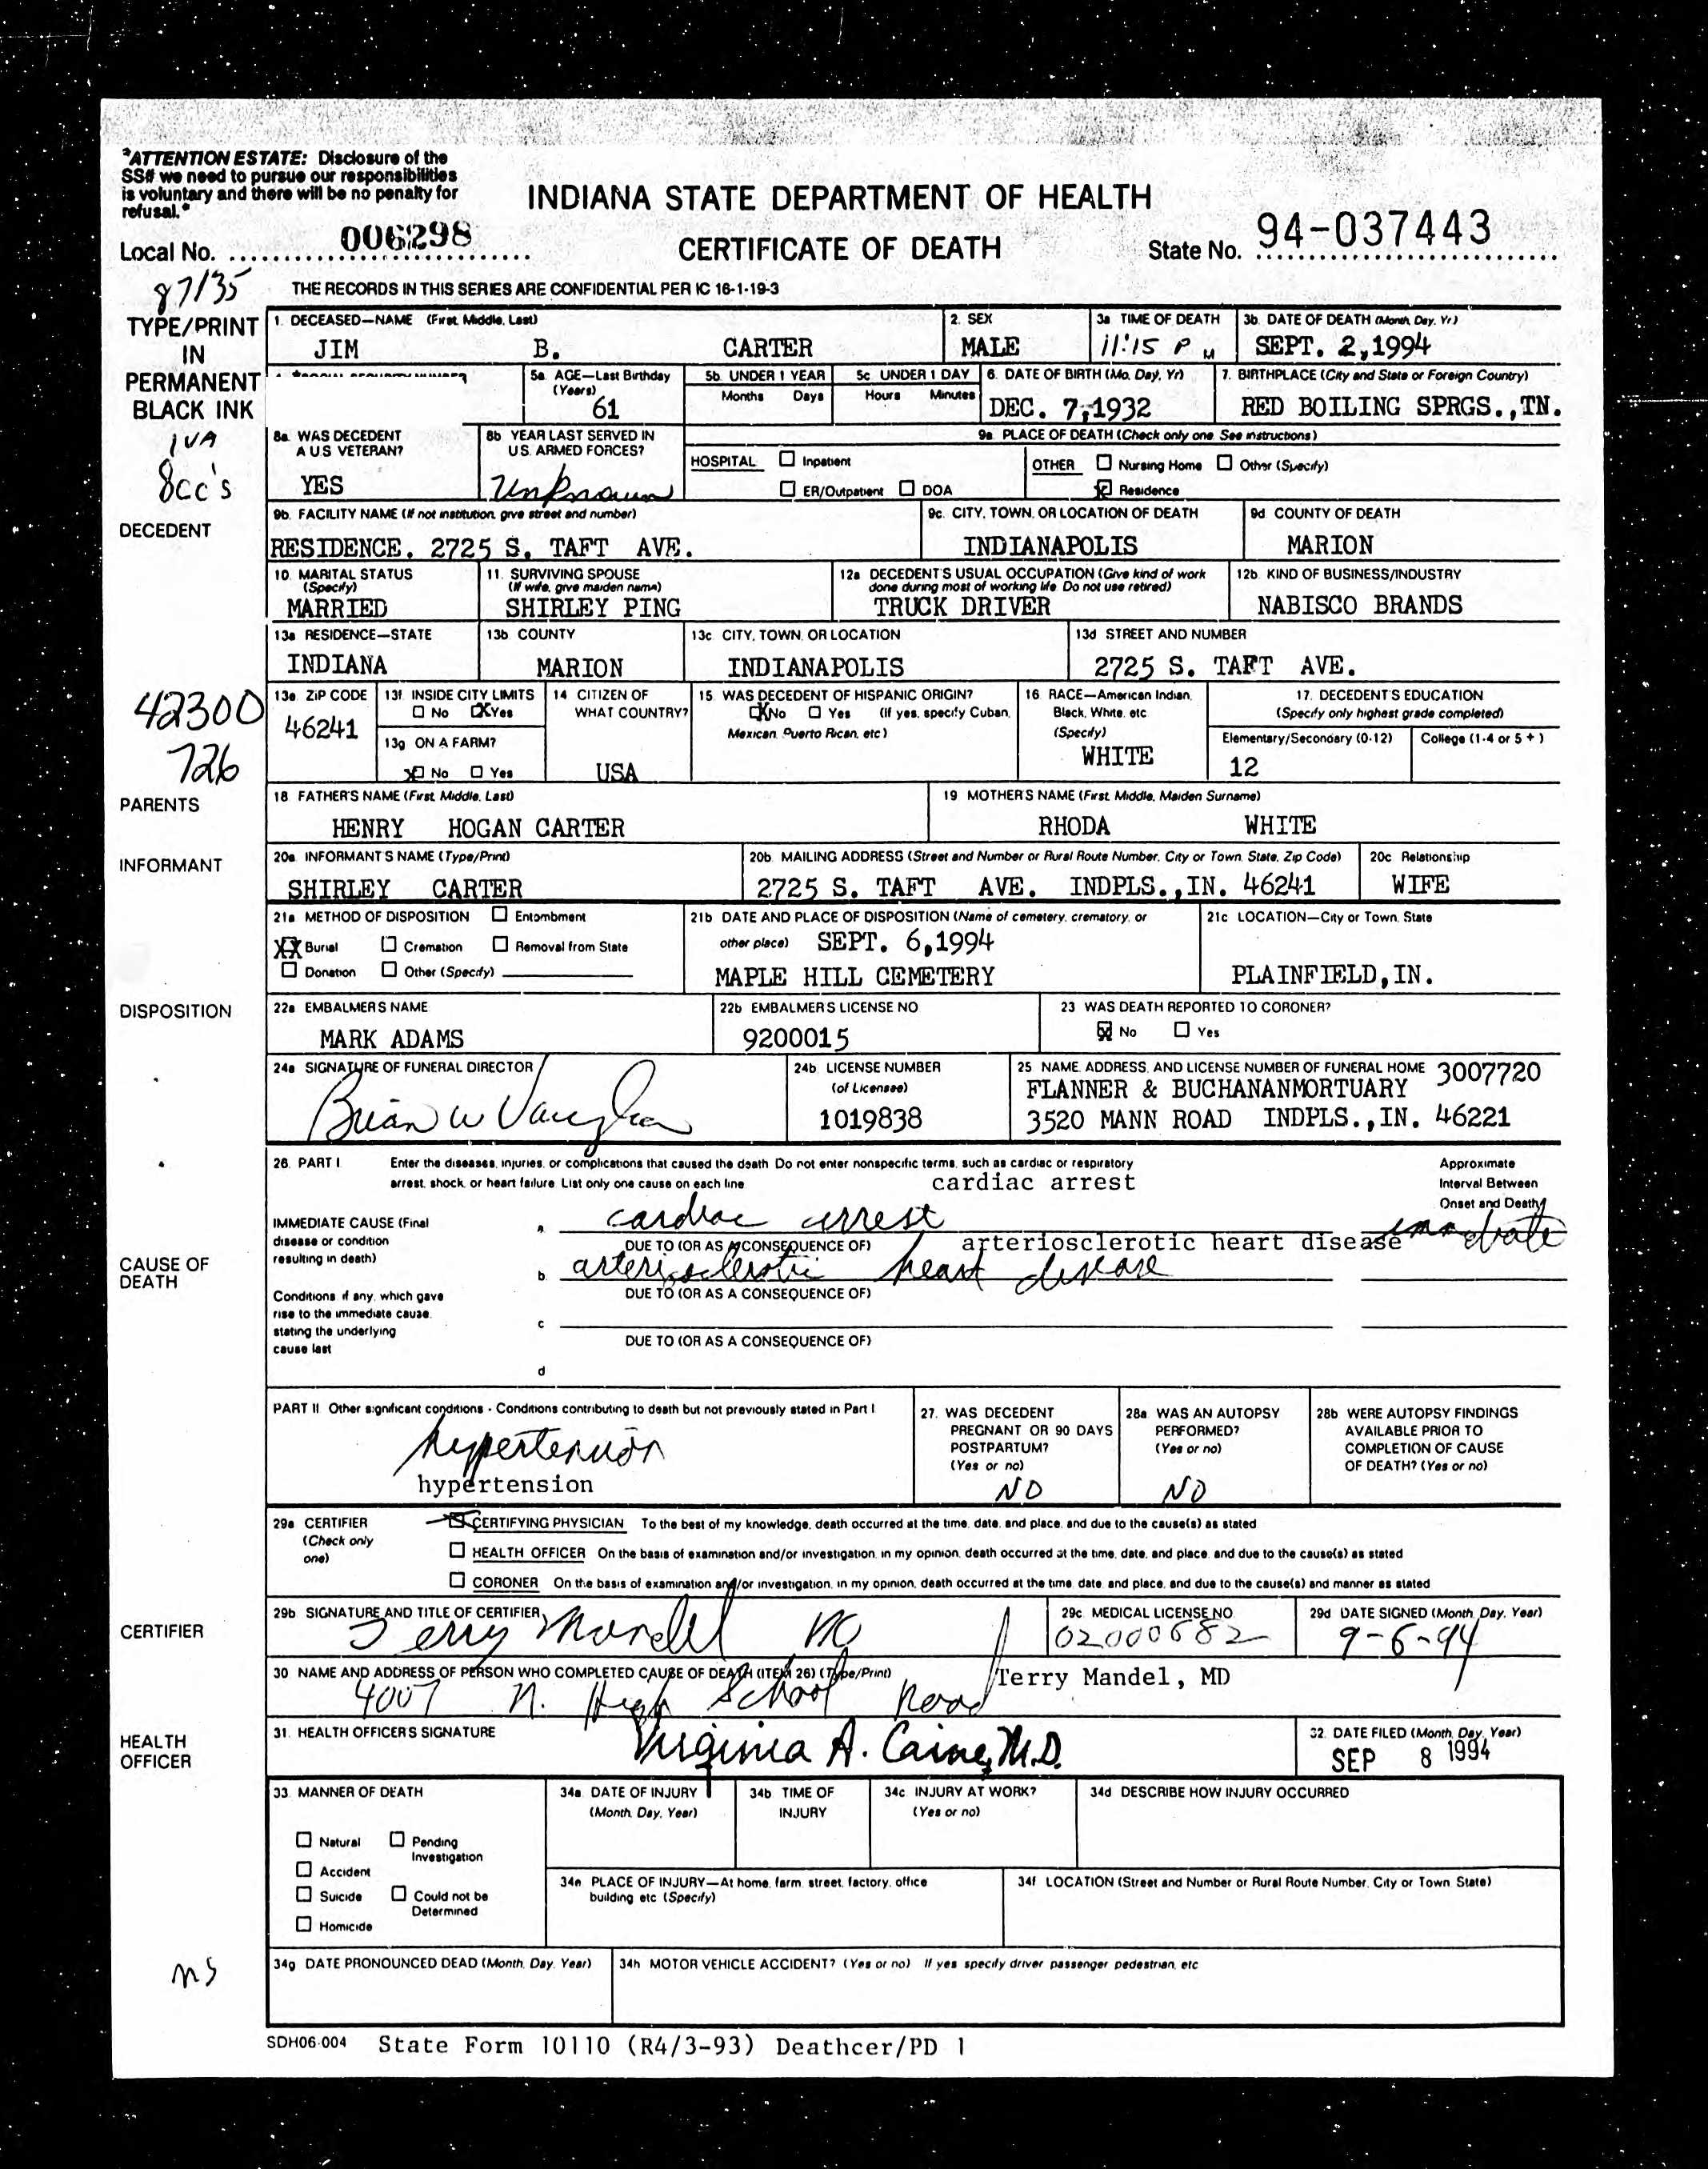 *ATTENTION ESTATE: Disclosure of the
SS# we need to pursue our responsibilities
is voluntary and there will be no penalty for
refusal.*
INDIANA STATE DEPARTMENT OF HEALTH
CERTIFICATE OF DEATH
Local No. 006298
State No. 94-037443
87135
THE RECORDS IN THIS SERIES ARE CONFIDENTIAL PER IC 16-1-19-3
TYPE/PRINT
IN
PERMANENT
BLACK INK
1. DECEASED—NAME (First, Middle, Last)
JIM B. CARTER
2. SEX
MALE
3a TIME OF DEATH
11:15 P M
3b. DATE OF DEATH (Month, Day, Yr.)
SEPT. 2,1994
5a. AGE—Last Birthday
(Years)
61
5b. UNDER 1 YEAR
Months Days
5c UNDER 1 DAY
Hours Minutes
6. DATE OF BIRTH (Mo, Day, Yr)
DEC. 7,1932
7. BIRTHPLACE (City and State or Foreign Country)
RED BOILING SPRGS.,TN.
IVA
8cc's
DECEDENT
8a. WAS DECEDENT
A U.S. VETERAN?
YES
8b YEAR LAST SERVED IN
U.S. ARMED FORCES?
Unknown
9a. PLACE OF DEATH (Check only one. See instructions)
HOSPITAL Inpatient
ER/Outpatient DOA
OTHER Nursing Home Other (Specify)
Residence
9b. FACILITY NAME (If not institution, give street and number)
RESIDENCE. 2725 S. TAFT AVE.
9c. CITY, TOWN, OR LOCATION OF DEATH
INDIANAPOLIS
9d COUNTY OF DEATH
MARION
10. MARITAL STATUS
(Specify)
MARRIED
11. SURVIVING SPOUSE
(If wife, give maiden name)
SHIRLEY PING
12a DECEDENT'S USUAL OCCUPATION (Give kind of work
done during most of working life. Do not use retired)
TRUCK DRIVER
12b. KIND OF BUSINESS/INDUSTRY
NABISCO BRANDS
13a RESIDENCE—STATE
INDIANA
13b COUNTY
MARION
13c CITY, TOWN, OR LOCATION
INDIANAPOLIS
13d STREET AND NUMBER
2725 S. TAFT AVE.
42300
726
13e. ZIP CODE
46241
13f. INSIDE CITY LIMITS
No Yes
13g ON A FARM?
No Yes
14 CITIZEN OF
WHAT COUNTRY?
USA
15. WAS DECEDENT OF HISPANIC ORIGIN?
No Yes (If yes, specify Cuban,
Mexican, Puerto Rican, etc)
16. RACE—American Indian,
Black, White, etc
(Specify)
WHITE
17. DECEDENT'S EDUCATION
(Specify only highest grade completed)
Elementary/Secondary (0-12)
12
College (1-4 or 5 + )
PARENTS
18 FATHER'S NAME (First, Middle, Last)
HENRY HOGAN CARTER
19 MOTHER'S NAME (First, Middle, Maiden Surname)
RHODA WHITE
INFORMANT
20a. INFORMANT'S NAME (Type/Print)
SHIRLEY CARTER
20b. MAILING ADDRESS (Street and Number or Rural Route Number, City or Town, State, Zip Code)
2725 S. TAFT AVE. INDPLS.,IN. 46241
20c Relationship
WIFE
21a METHOD OF DISPOSITION Entombment
XX Burial Cremation Removal from State
Donation Other (Specify)
21b DATE AND PLACE OF DISPOSITION (Name of cemetery, crematory, or
other place) SEPT. 6,1994
MAPLE HILL CEMETERY
21c LOCATION—City or Town, State
PLAINFIELD,IN.
DISPOSITION
22a EMBALMER'S NAME
MARK ADAMS
22b EMBALMER'S LICENSE NO
9200015
23 WAS DEATH REPORTED TO CORONER?
No Yes
24a SIGNATURE OF FUNERAL DIRECTOR
Brian W Vaughn
24b. LICENSE NUMBER
(of Licensee)
1019838
25 NAME, ADDRESS, AND LICENSE NUMBER OF FUNERAL HOME 3007720
FLANNER & BUCHANANMORTUARY
3520 MANN ROAD INDPLS.,IN. 46221
26. PART I Enter the diseases, injuries, or complications that caused the death Do not enter nonspecific terms, such as cardiac or respiratory
arrest, shock, or heart failure List only one cause on each line
cardiac arrest
Approximate
Interval Between
Onset and Death
CAUSE OF
DEATH
IMMEDIATE CAUSE (Final
disease or condition
resulting in death)
a. cardiac arrest
immediate
DUE TO (OR AS A CONSEQUENCE OF)
arteriosclerotic heart disease
b. arteriosclerotic heart disease
DUE TO (OR AS A CONSEQUENCE OF)
Conditions if any, which gave
rise to the immediate cause,
stating the underlying
cause last
c
DUE TO (OR AS A CONSEQUENCE OF)
d
PART II Other significant conditions - Conditions contributing to death but not previously stated in Part I
hypertension
hypertension
27. WAS DECEDENT
PREGNANT OR 90 DAYS
POSTPARTUM?
(Yes or no)
NO
28a WAS AN AUTOPSY
PERFORMED?
(Yes or no)
NO
28b WERE AUTOPSY FINDINGS
AVAILABLE PRIOR TO
COMPLETION OF CAUSE
OF DEATH? (Yes or no)
29a CERTIFIER
(Check only
one)
CERTIFYING PHYSICIAN To the best of my knowledge, death occurred at the time, date, and place, and due to the cause(s) as stated
HEALTH OFFICER On the basis of examination and/or investigation, in my opinion, death occurred at the time, date, and place, and due to the cause(s) as stated
CORONER On the basis of examination and/or investigation, in my opinion, death occurred at the time, date, and place, and due to the cause(s) and manner as stated
CERTIFIER
29b. SIGNATURE AND TITLE OF CERTIFIER
Terry Mandel MD
29c MEDICAL LICENSE NO.
02000682
29d DATE SIGNED (Month, Day, Year)
9-6-94
30 NAME AND ADDRESS OF PERSON WHO COMPLETED CAUSE OF DEATH (ITEM 26) (Type/Print)
Terry Mandel, MD
4007 N. High School Road
HEALTH
OFFICER
31. HEALTH OFFICER'S SIGNATURE
Virginia A. Caine, M.D.
32. DATE FILED (Month, Day, Year)
SEP 8 1994
33. MANNER OF DEATH
Natural Pending
Investigation
Accident
Suicide Could not be
Determined
Homicide
34a. DATE OF INJURY
(Month, Day, Year)
34b. TIME OF
INJURY
34c INJURY AT WORK?
(Yes or no)
34d DESCRIBE HOW INJURY OCCURRED
34e PLACE OF INJURY—At home, farm, street, factory, office
building etc (Specify)
34f LOCATION (Street and Number or Rural Route Number, City or Town State)
ms
34g DATE PRONOUNCED DEAD (Month, Day, Year)
34h MOTOR VEHICLE ACCIDENT? (Yes or no) If yes specify driver passenger pedestrian, etc
SDH06-004 State Form 10110 (R4/3-93) Deathcer/PD 1